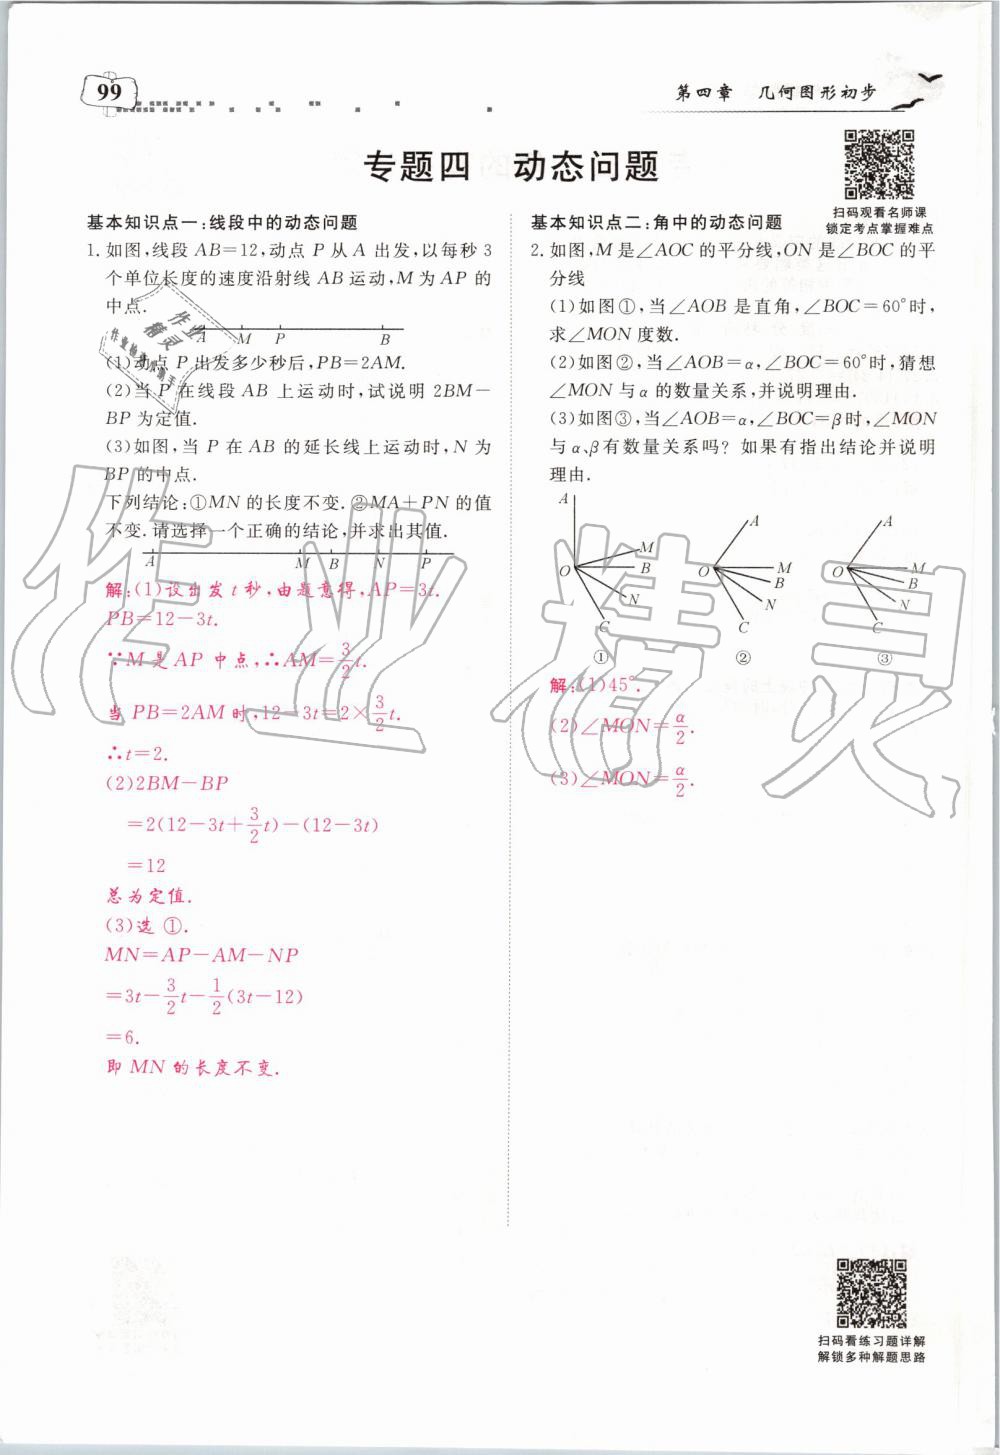 99
第四章 几何图形初步
专题四 动态问题
扫码观看名师课
锁定考点掌握难点
基本知识点一:线段中的动态问题
1. 如图,线段 AB=12,动点 P 从 A 出发,以每秒 3
个单位长度的速度沿射线 AB 运动,M 为 AP 的
中点.
A M P B
(1)动点 P 出发多少秒后,PB=2AM.
(2)当 P 在线段 AB 上运动时,试说明 2BM-
BP 为定值.
(3)如图,当 P 在 AB 的延长线上运动时,N 为
BP 的中点.
下列结论:①MN 的长度不变.②MA+PN 的值
不变.请选择一个正确的结论,并求出其值.
A M B N P
解:(1)设出发 t 秒,由题意得,AP=3t.
PB=12-3t.
∵M 是 AP 中点,∴AM=3/2 t.
当 PB=2AM 时,12-3t=2×3/2 t.
∴t=2.
(2)2BM-BP
=2(12-3t+3/2 t)-(12-3t)
=12
总为定值.
(3)选 ①.
MN=AP-AM-NP
=3t-3/2 t-1/2(3t-12)
=6.
即 MN 的长度不变.
基本知识点二:角中的动态问题
2. 如图,M 是∠AOC 的平分线,ON 是∠BOC 的平
分线
(1)如图①,当∠AOB 是直角,∠BOC=60°时,
求∠MON 度数.
(2)如图②,当∠AOB=α,∠BOC=60°时,猜想
∠MON 与 α 的数量关系,并说明理由.
(3)如图③,当∠AOB=α,∠BOC=β 时,∠MON
与 α、β 有数量关系吗? 如果有指出结论并说明
理由.
A O M B N C
①
A O M B N C
②
A O M B N C
③
解:(1)45°.
(2)∠MON=α/2.
(3)∠MON=α/2.
扫码看练习题详解
解锁多种解题思路
作业精灵
作业
精灵